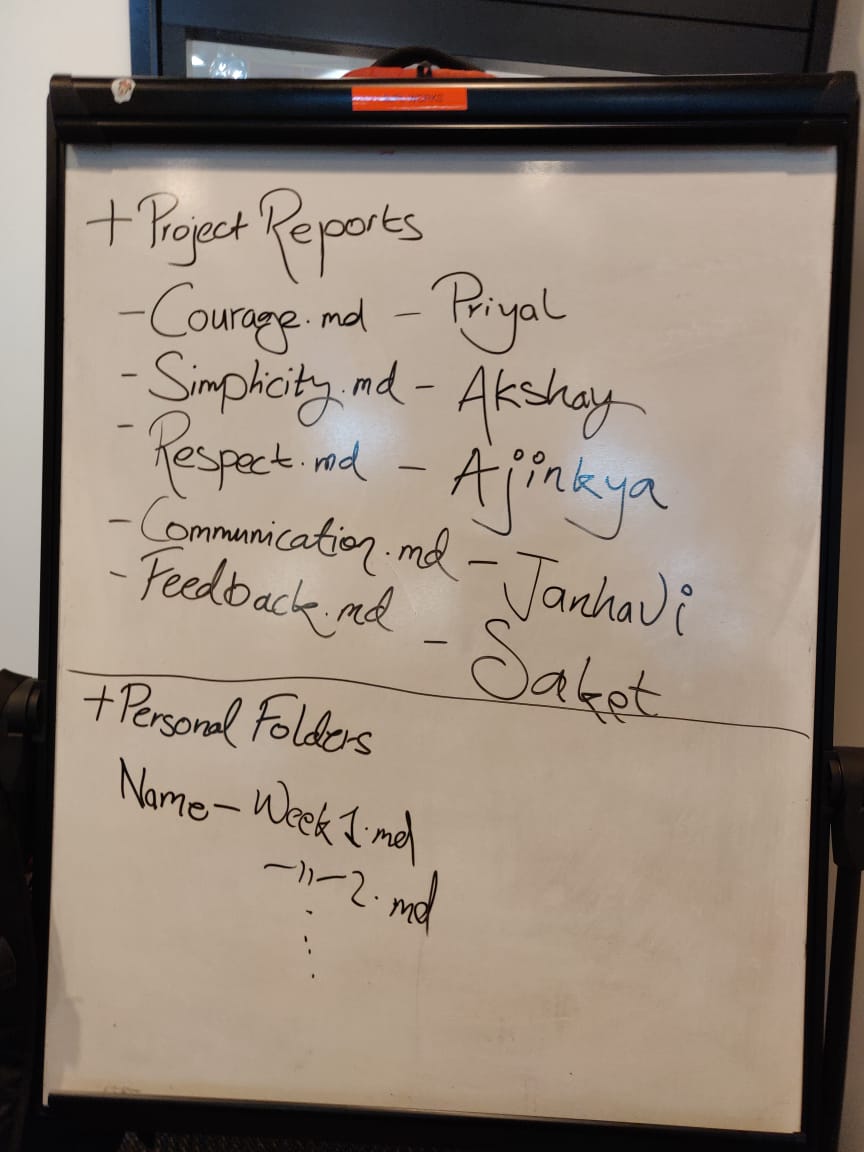 + Project Reports
- Courage.md - Priyal
- Simplicity.md - Akshay
- Respect.md - Ajinkya
- Communication.md - Janhavi
- Feedback.md - Saket
+ Personal Folders
Name - Week 1.md
-11- 2.md